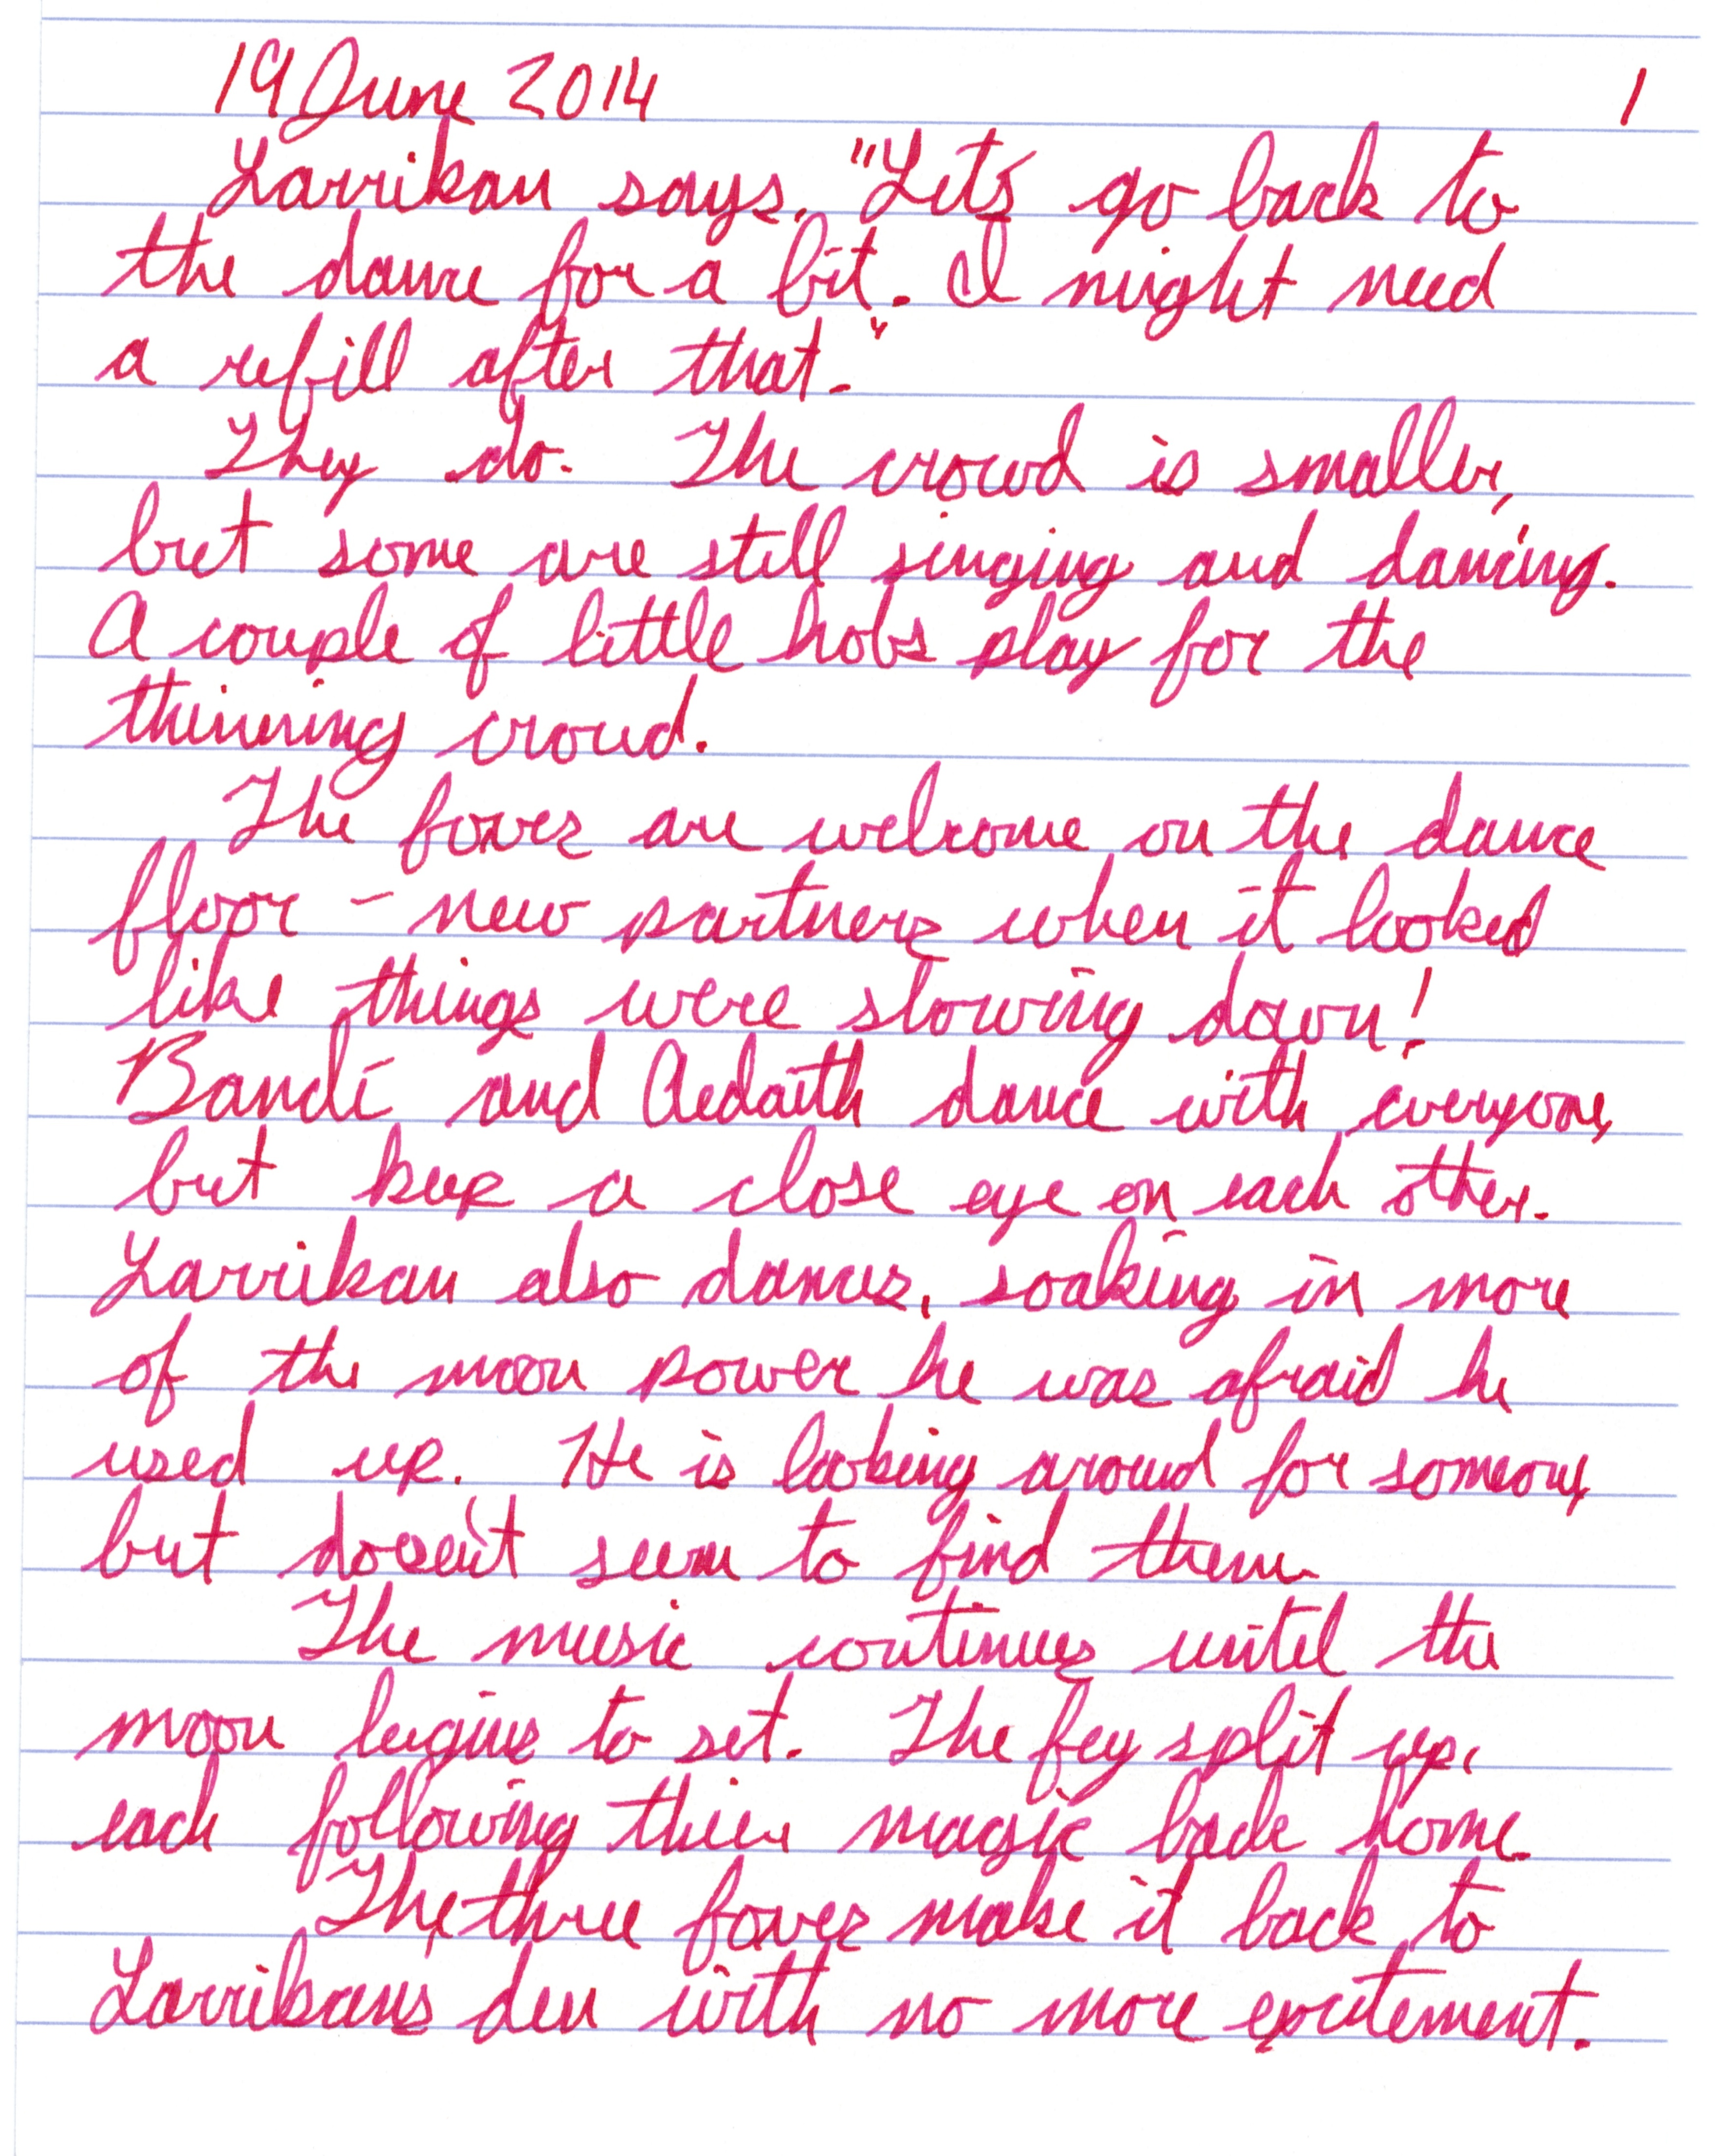 19 June 2014 1
Larrikan says, "Let's go back to
the dance for a bit. I might need
a refill after that."
They do. The crowd is smaller,
but some are still singing and dancing.
A couple of little hobs play for the
thinning crowd.
The foxes are welcome on the dance
floor – new partners when it looked
like things were slowing down!
Bandi and Aedaith dance with everyone,
but keep a close eye on each other.
Larrikan also dances, soaking in more
of the moon power he was afraid he
used up. He is looking around for someone,
but doesn't seem to find them.
The music continues until the
moon begins to set. The fey split up,
each following thier magic back home.
The three foxes make it back to
Larrikan's den with no more excitement.